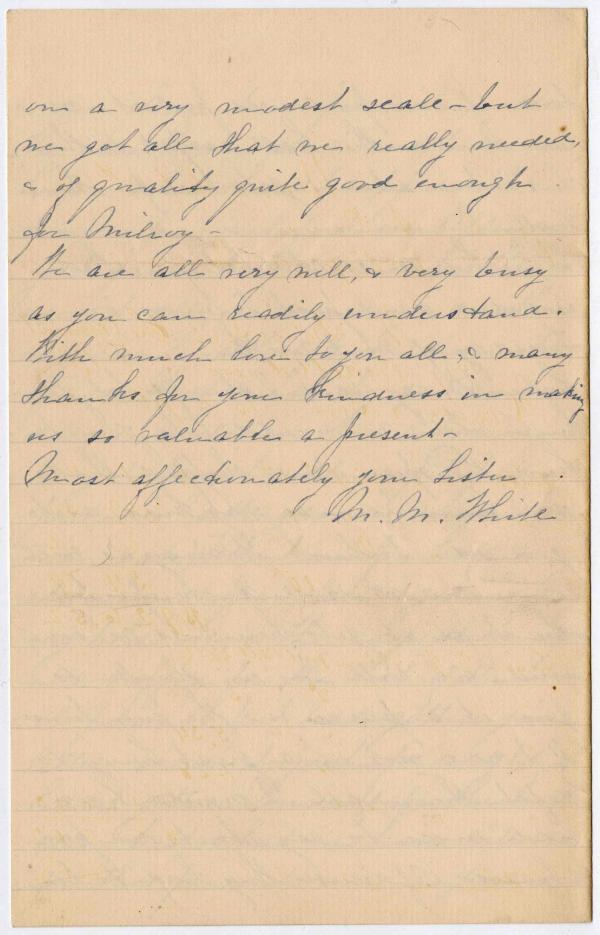 on a very modest scale - but
we got all that we really needed,
& of quality quite good enough
for Milroy -
We are all very well, & very busy
as you can readily understand.
With much love to you all, & many
thanks for your kindness in making
us so valuable a present -
Most affectionately your Sister
M. M. White